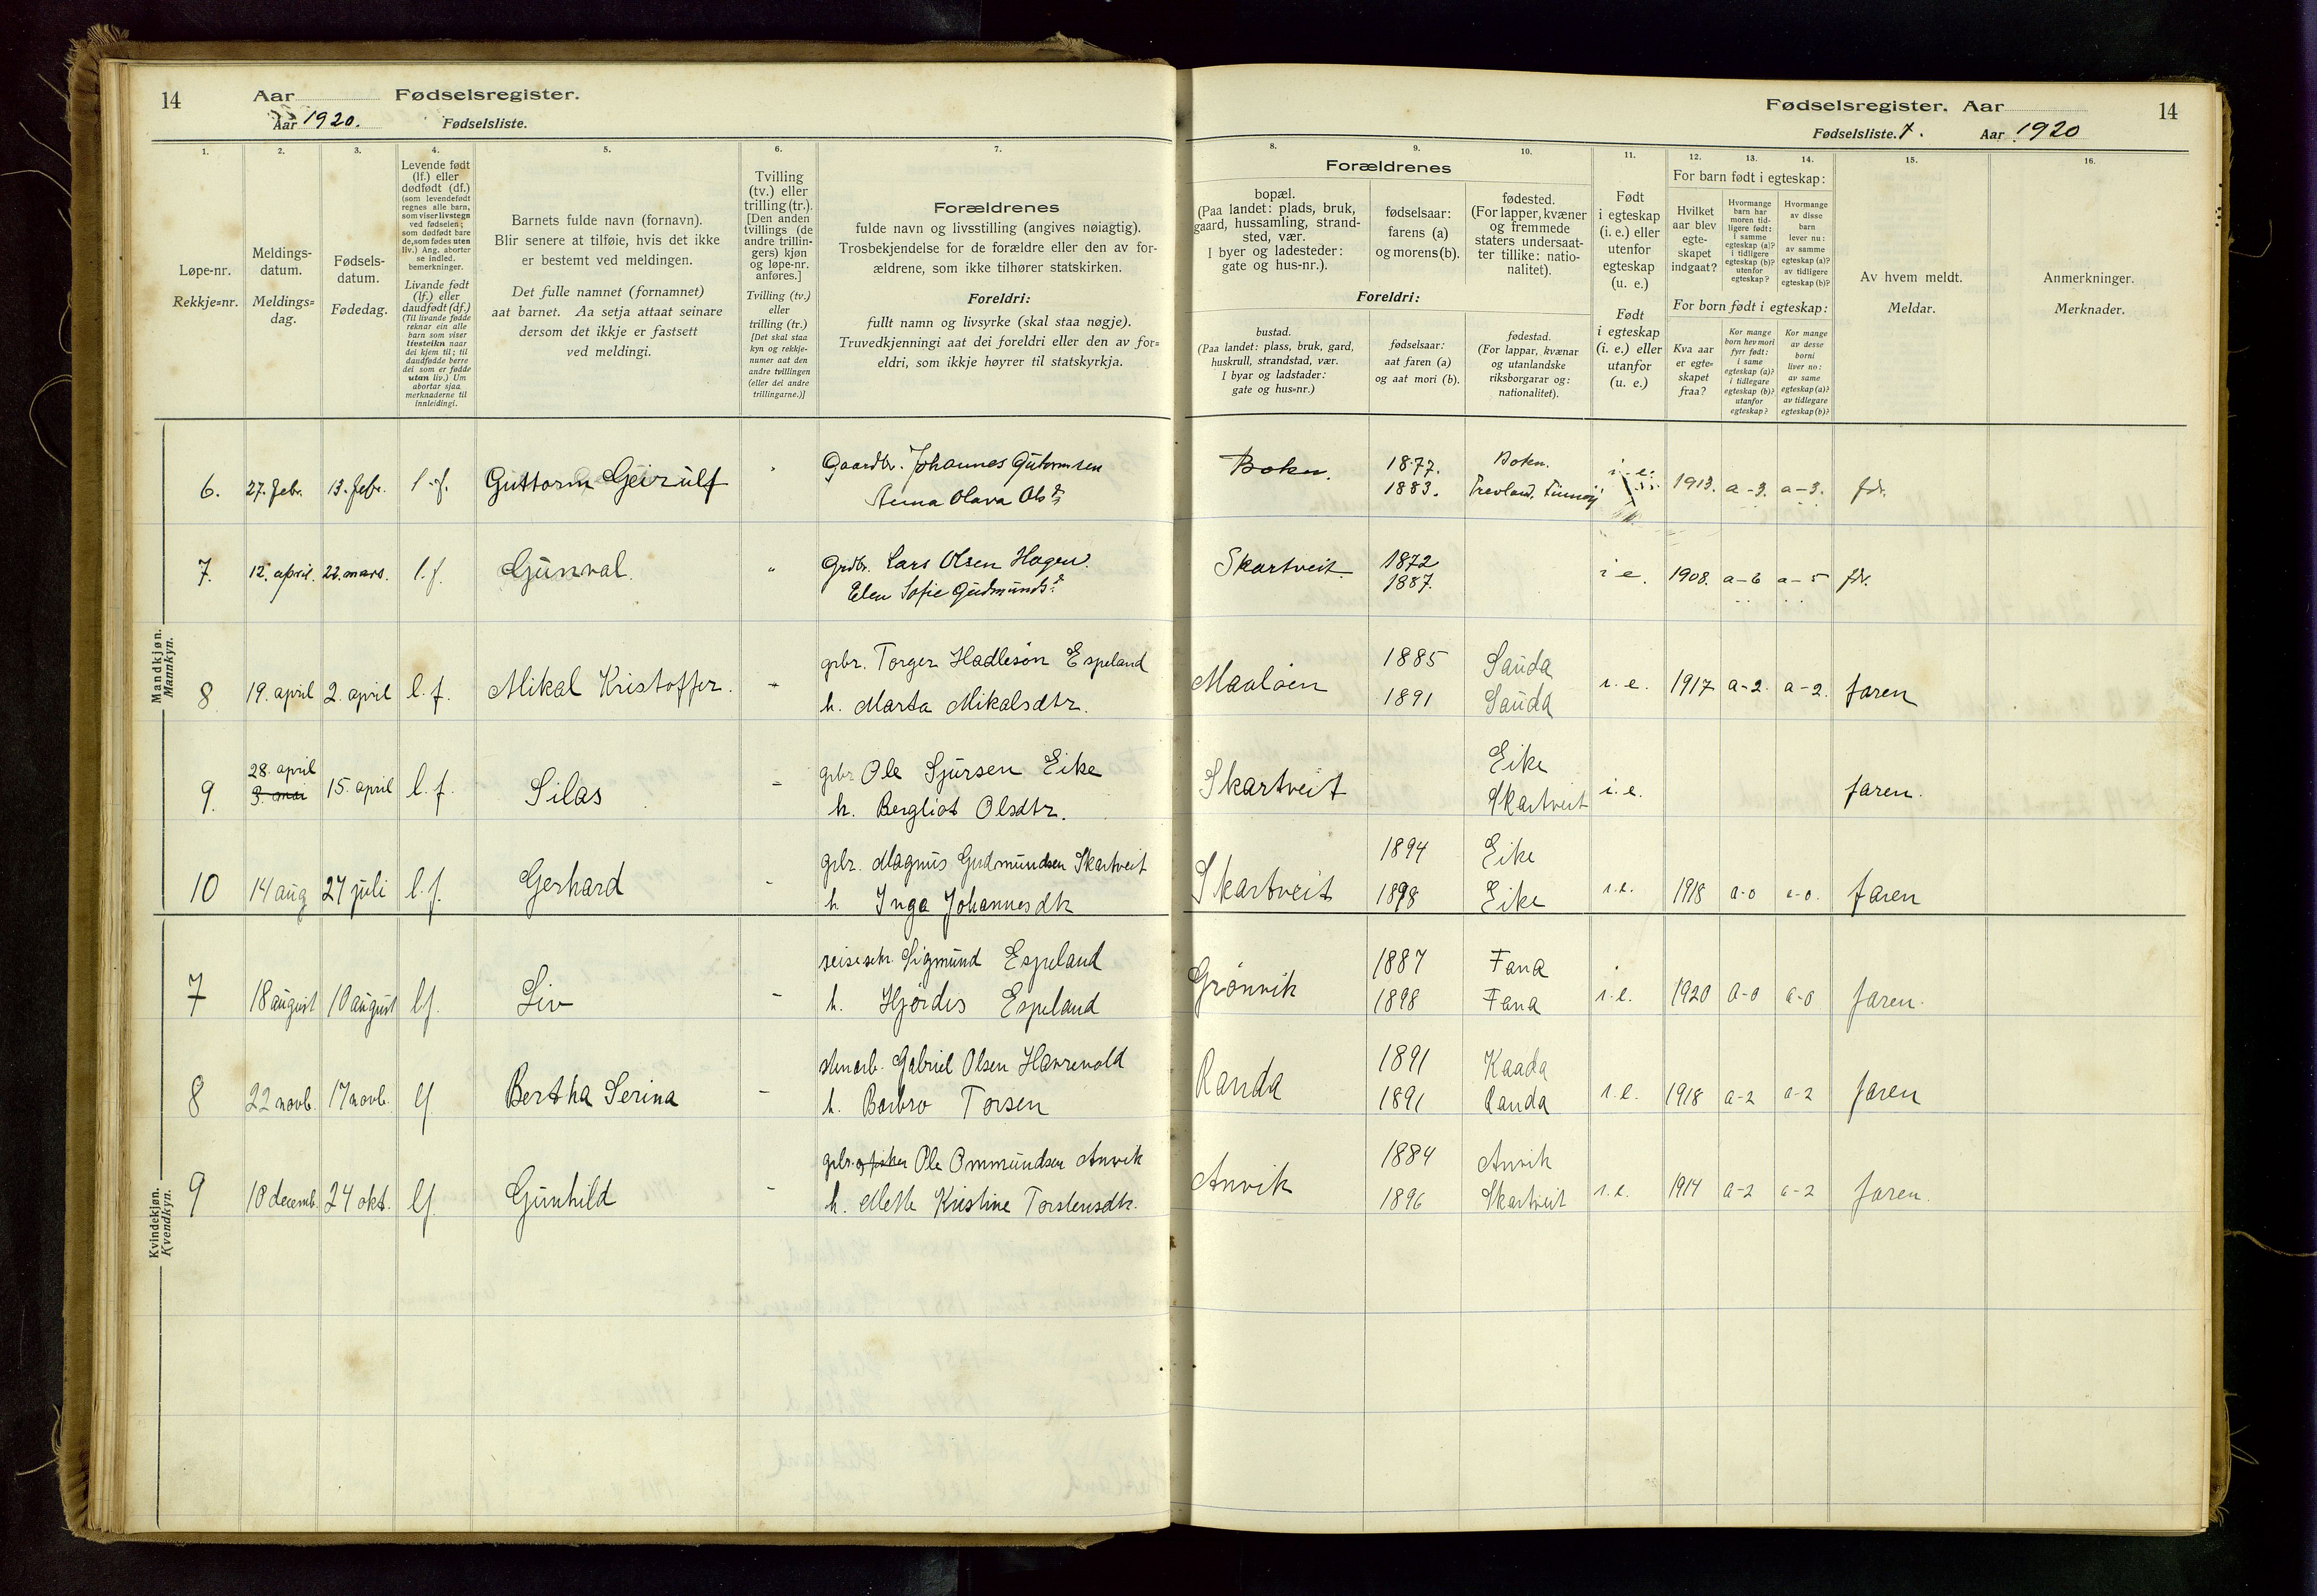 14
Aar
Fødselsregister.
Aar 1920.
Fødselsliste.
Fødselsregister. Aar
14
Fødselsliste. 7.
Aar 1920
1.
2.
3.
4.
5.
6.
7.
8.
9.
10.
11.
12.
13.
14.
15.
16.
Løpe-nr.
Rekkje=nr.
Meldings-
datum.
Meldings=
dag.
Fødsels-
datum.
Fødedag.
Levende født
(lf.) eller
dødfødt (df.)
(som levendefødt
regnes alle barn,
som viser livstegn
ved fødselen;
som dødfødt bare
de, som fødes uten
liv.) Ang. aborter
se indled.
bemerkninger.
Livande født
(lf.) eller
daudfødt (df.)
(Til livande fødde
reknar ein alle
barn som viser
livsteikn naar
dei kjem til; til
daudfødde berre
dei som er fødde
utan liv.) Um
abortar sjaa
merknaderne til
innleidingi.
Barnets fulde navn (fornavn).
Blir senere at tilføie, hvis det ikke
er bestemt ved meldingen.
Det fulle namnet (fornamnet)
aat barnet. Aa setja attaat seinare
dersom det ikkje er fastsett
ved meldingi.
Tvilling
(tv.) eller
trilling (tr.).
[Den anden
tvillings (de
andre trillin-
gers) kjøn
og løpe-nr.
anføres.]
Tvilling (tv.)
eller
trilling (tr.)
[Det skal staa
kyn og rekkje-
numer aat den
andre tvillingen
(eller dei andre
trillingarne.)]
Forældrenes
fulde navn og livsstilling (angives nøiagtig).
Trosbekjendelse for de forældre eller den av for-
ældrene, som ikke tilhører statskirken.
Foreldri:
fullt namn og livsyrke (skal staa nøgje).
Truvedkjenningi aat dei foreldri eller den av for=
eldri, som ikkje høyrer til statskyrkja.
Forældrenes
bopæl.
(Paa landet: plads, bruk,
gaard, hussamling, strand-
sted, vær.
I byer og ladesteder:
gate og hus-nr.).
fødselsaar:
farens (a)
og morens (b).
fødested.
(For lapper, kvæner
og fremmede
staters undersaat-
ter tillike: natio-
nalitet).
Foreldri:
bustad.
(Paa landet: plass, bruk, gard,
huskrull, strandstad, vær.
I byar og ladstader:
gate og hus=nr.)
fødselsaar:
aat faren (a)
og aat mori (b).
fødestad.
(For lappar, kvænar
og utanlandske
riksborgarar og:
nationalitet).
Født
i egteskap
(i. e.) eller
utenfor
egteskap
(u. e.)
Født
i egteskap
(i. e.) eller
utanfor
(u. e.)
For barn født i egteskap:
Hvilket
aar blev
egte-
skapet
indgaat?
Hvormange
barn har
moren tid-
ligere født:
i samme
egteskap (a)?
i tidligere
egteskap (b)?
utenfor
egteskap?
Hvormange
av disse
barn
lever nu:
av samme
egteskap (a)?
av tidligere
egteskap (b)?
For born født i egteskap:
Kva aar
er egte-
skapet
fraa?
Kor mange
born hev mori
fyrr født:
i same
egteskap (a)?
i tidlegare
egteskap (b)?
utanfor
egteskap?
Kor mange
av desse
borni
liver no:
av same
egteskap (a)?
av tidlegare
egteskap (b)?
Av hvem meldt.
Meldar.
Anmerkninger.
Merknader.
Mandkjøn.
Mankyn.
6. 27. febr. 13. febr. l.f. Guttorm Geirulf Gaardbr. Johannes Gutormsen Boken. 1877. Boken. i. e. 1913. a-3. a-3. fdr.
Anna Olava Olsdr 1883. Finnøy
7. 12. april. 22. mars. l.f. Gunval. " Grdbr. Lars Olsen Hagen. Skartveit. 1872 i e. 1908. a-6 a-5 fdr.
Elen Sofie Gudmundsd. 1887.
8 19. april 2. april l. f. Mikal Kristoffer. - grbr. Torger Hadleson Espeland Maaløen 1885 Sauda i. e. 1917 a-2. a-2. faren
h. Marta Mikalsdtr. 1891 Sauda
9. 28. april 3. mai 15. april l. f. Silas - grbr Ole Sjursen Eike Skartveit Eike i.e. faren.
h. Bergliot Olsdtr. Skartveit
10 14 aug 27 juli l.f. Gerhard - grbr. Magnus Gudmundsen Skartveit Skartveit 1894 Eike i.e. 1918 a-0 a-0. faren
h. Inga Johannesdtr 1898 Eike
Kvindekjøn.
Kvendkyn.
7 18 august 10 august lf. Liv - reisesekr. Sigmund Espeland Grønvik 1887 Fana i.e. 1920 a-0 a-0 faren.
h. Hjørdis Espeland 1898 Fana
8 22 novb. 17 novb. lf. Bertha Serina - stenarb. Gabriel Olsen Havrevold Randa 1891 Kaada i.e. 1918 a-2 a-2 faren
h. Barbro Torsen 1891 Randa
9 18 decemb. 24 okt. lf. Gunhild - grbr. og fisker Ole Ommundsen Anvik Anvik 1884 Anvik i.e. 1914 a-2 a-2 faren.
h. Mette Kristine Torstensdtr. 1896 Skartveit